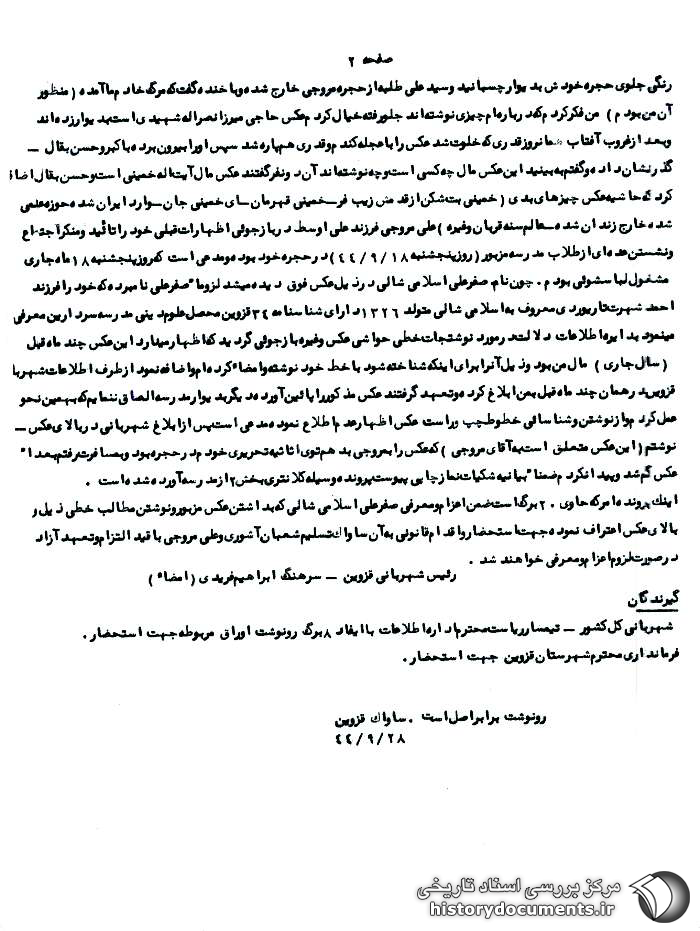 صفحه ۲
رنگی جلوی حجره خود ش بد یوار چسبانید وسید علی طلبه از حجره مروجی خارج شد ه وبا خند ه گفت که مرگ خاد م ما آمد ه ( منظور
آن من بود م ) من فکر کرد م که د ر باره ام چیزی نوشته اند جلو رفته خیال کرد م عکس حاجی میرزا نصراله شهید ی است بد یوار زد ه اند
وبعد از غروب آفتاب قد ری که خلوت شد عکس را با عجله کند م و قد ری هم پاره شد سپس اورا بیرون برد ه با کبر وحسن بقال —
گذ ر نشان د اد ه وگفتم به بینید این عکس مال چه کسی است و چه نوشته اند آن د ونفر گفتند عکس مال آیت اله خمینی است و حسن بقال اضا فه
کرد که حا شیه عکس چیزهای بد ی ( خمینی بت شکن از قد مش زیب فر — خمینی قهرمان — ای خمینی جان — وارد ایران شد ه حوزه علمی
شد ه خارج زند ان شد ه — عالم سنه قربان وغیره ) علی مروجی فرزند علی اوسط د ر بازجوئی اظهارات قبلی خود را تائید ومنکر اجتماع
ونشستن عد ه ای از طلاب مد رسه مزبور ( روز پنجشنبه ۴۴/۹/۱۸ ) د ر حجره خود بود ه ومد عی است که روز پنجشنبه ۱۸ ماه جاری
مشغول لبا سشوئی بود م . چون نام صفر علی اسلامی شالی د ر ذ یل عکس فوق د ید ه میشد لزوما" صفرعلی نامبرد ه که خود را فرزند
احمد شهرت تاریورد ی معروف به اسلامی شالی متولد ۱۳۲۶ د ارای شنا سنامه ۳۴ قزوین محصل علوم د ینی مد رسه سرد ارین معرفی
مینمود بد ایره اطلاعات د لالت د ر مورد نوشتجات خطی حواشی عکس وغیره بازجوئی گرد ید که اظهار مید ارد این عکس چند ماه قبل
( سال جاری ) مال من بود و ذ یل آنرا برای اینکه شناخته شود با خط خود نوشته وامضاء کرد ه ام و اضافه نمود از طرف اطلاعات شهربا نی
قزوین د ر همان چند ماه قبل بمن ابلاغ کرد ه و تعهد گرفتند عکس مذ کور را پائین آورد ه د یگر بد یوار مد رسه الصاق ننمایم که بهمین نحو
عمل کرد م و از نوشتن وشنا سائی خطوط چپ و راست عکس اظهار عد م اطلاع نمود ه مد عی است پس از ابلاغ شهربانی د ر بالای عکس —
نوشتم ( این عکس متعلق است به آقای مروجی ) که عکس را بمروجی بد هم توی اثا ثیه تحریری خود م د ر حجره بود وبمسافرت رفتم بعد ا"
عکس گم شد و پید ا نکرد م ضمنا" بیانیه شکیات نماز چا پی پیوست پروند ه وسیله کلانتری بخش ۲ از مد رسه آورد ه شد ه است .
اینك پروند ه امر که حاوی ۲۰ برگ است ضمن اعزام و معرفی صفر علی اسلامی شالی که بد اشتن عکس مزبور و نوشتن مطالب خطی ذ یل و
بالای عکس اعتراف نمود ه جهت استحضار واقد ام قانونی به آن سا واك تسلیم شعبان آشوری وعلی مروجی با قید التزام و تعهد آزاد
د ر صورت لزوم اعزام و معرفی خواهند شد .
رئیس شهربانی قزوین — سرهنگ ابراهیم فرید ی ( امضاء )
گیرند گان
شهربانی کل کشور — تیمسار ریاست محترم اد اره اطلاعات با ایفاد ۸ برگ رونوشت اوراق مربوطه جهت استحضار .
فرماند اری محترم شهرستان قزوین جهت استحضار .
رونوشت برابر اصل است . سا واك قزوین
۴۴/۹/۲۸
مرکز بررسی اسناد تاریخی
historydocuments.ir